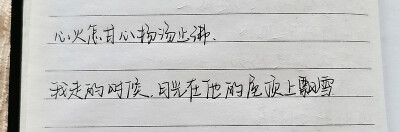 心火怎甘心扬汤止沸.
我走的时候,月光在他的屋顶上飘雪